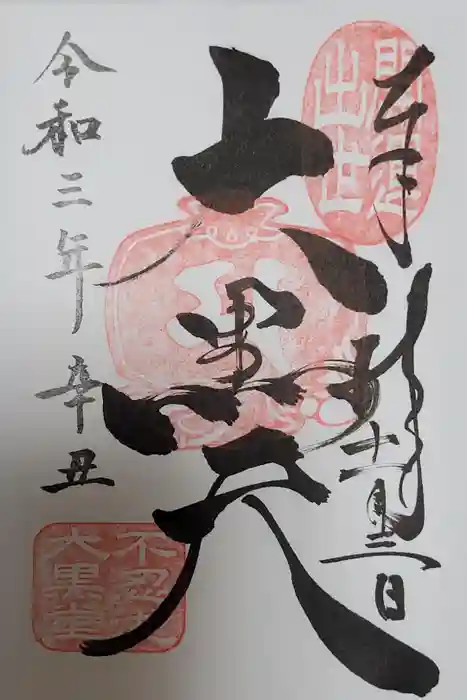 奉拝
十一月三日
大黒天
令和三年辛丑
開運
出世
不忍池
大黒堂